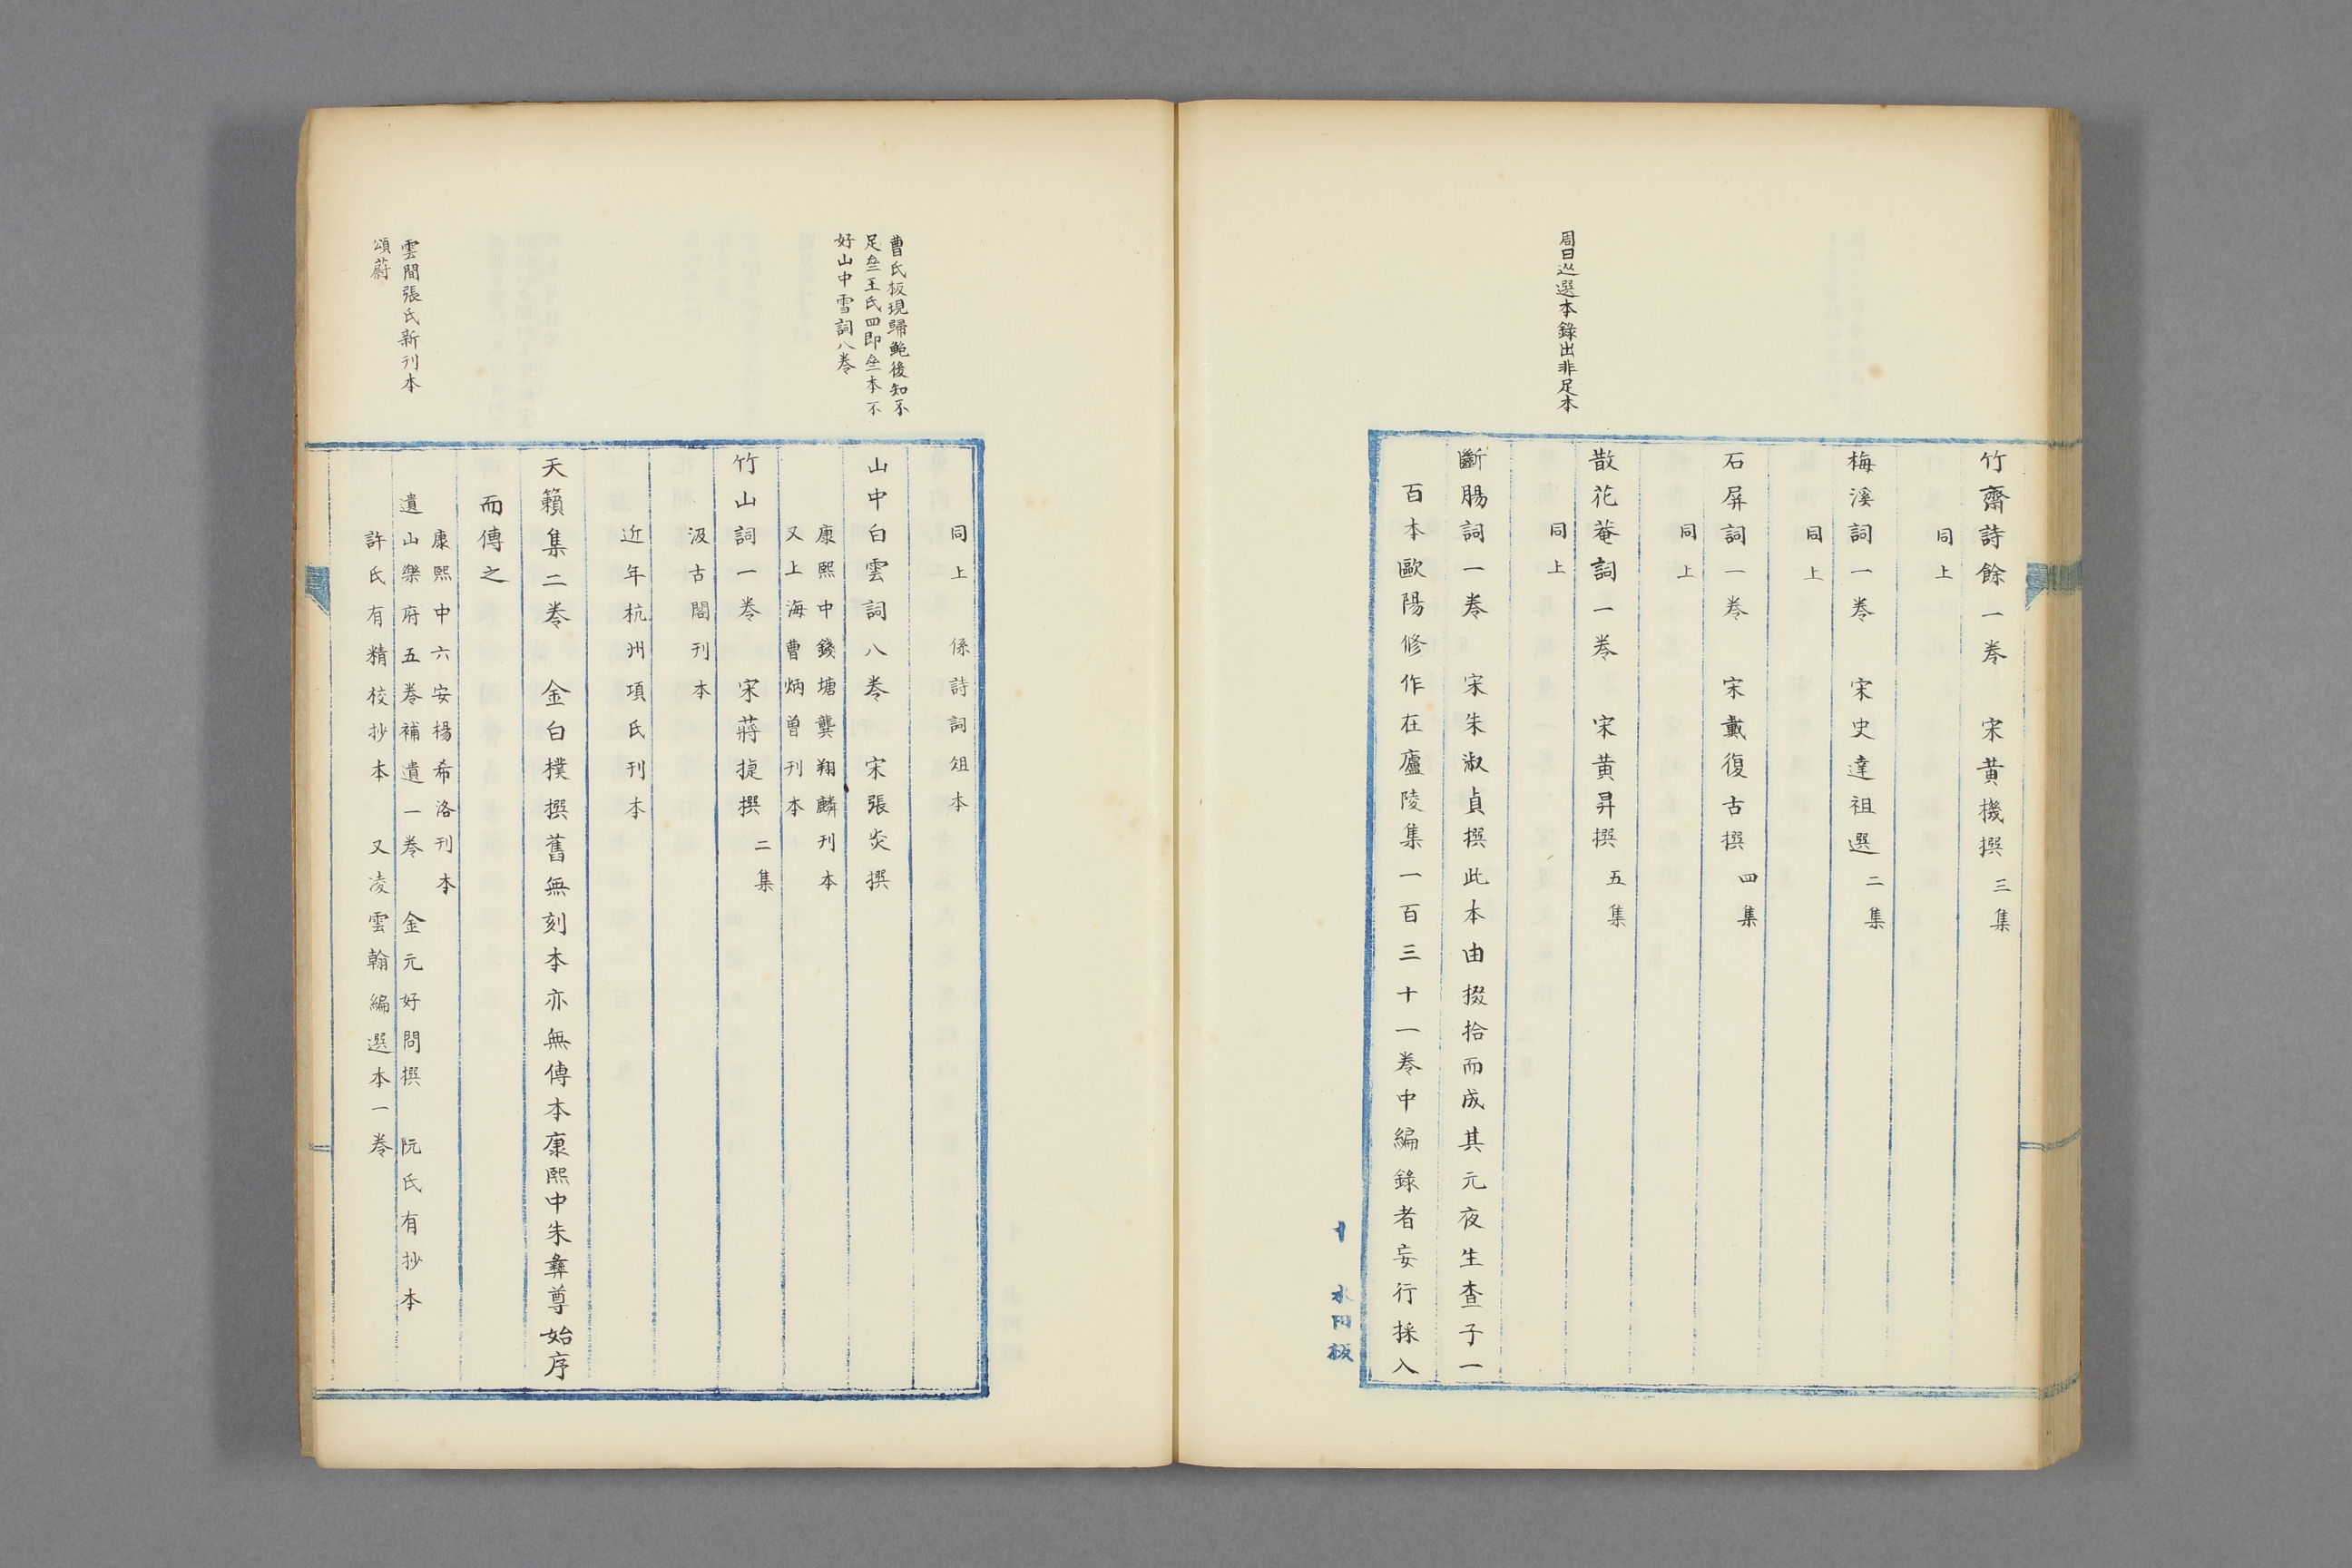 竹齋詩餘一卷 宋黄機撰 三集
同上
梅溪詞一卷 宋史達祖選 二集
同上
石屏詞一卷 宋戴復古撰 四集
同上
散花菴詞一卷 宋黄昇撰 五集
同上
周曰巡選本錄出非足本
斷腸詞一卷 宋朱淑貞撰此本由掇拾而成其元夜生查子一
百本歐陽修作在廬陵集一百三十一卷中編錄者妄行採入
十 水田板
同上 係詩詞俎本
曹氏板現歸鮑後知不
足垒王氏四即垒本不
好山中雪詞八卷
山中白雲詞八卷 宋張炎撰
康熙中錢塘龔翔麟刊本
又上海曹炳曾刊本
竹山詞一卷 宋蔣捷撰 二集
汲古閣刊本
近年杭州項氏刊本
天籟集二卷 金白樸撰舊無刻本亦無傳本康熙中朱彝尊始序
而傳之
康熙中六安楊希洛刊本
雲間張氏新刊本
頌蔚
遺山樂府五卷補遺一卷 金元好問撰 阮氏有抄本
許氏有精校抄本 又凌雲翰編選本一卷